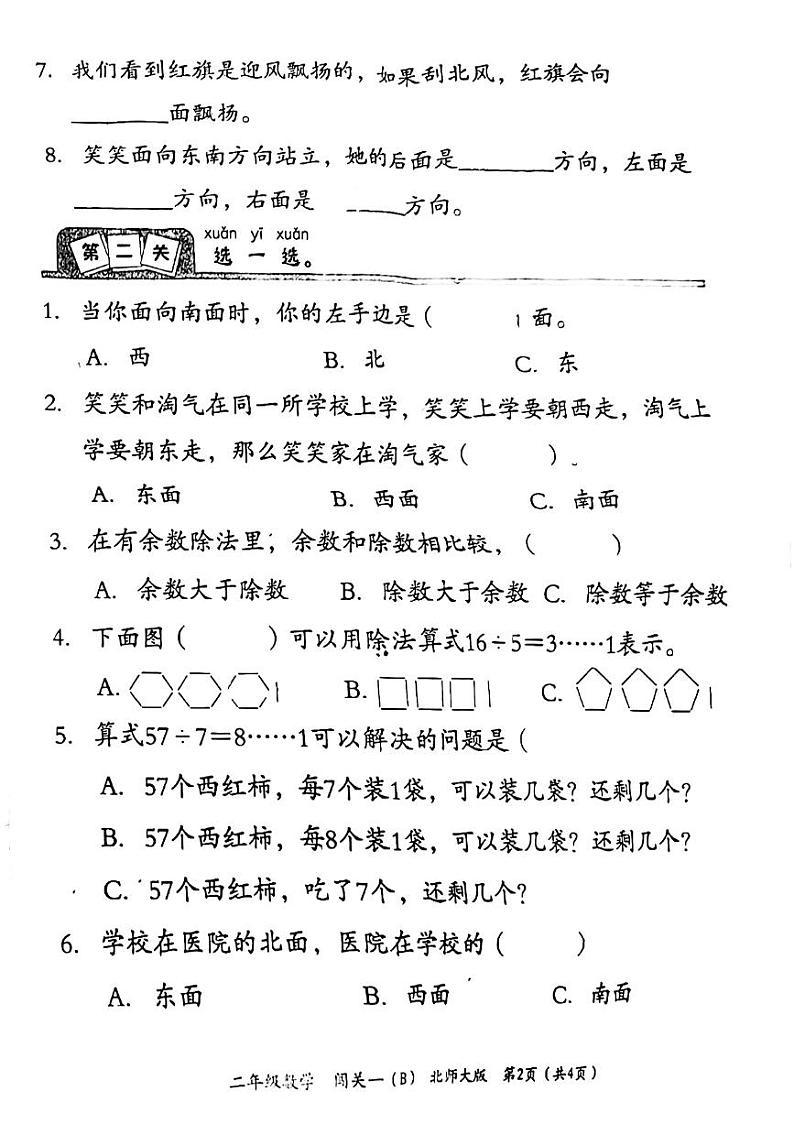 7. 我们看到红旗是迎风飘扬的，如果刮北风，红旗会向
________面飘扬。
8. 笑笑面向东南方向站立，她的后面是________方向，左面是
________方向，右面是 _____方向。
第二关 xuǎn yī xuǎn
选一选。
1. 当你面向南面时，你的左手边是（ ）面。
A. 西 B. 北 C. 东
2. 笑笑和淘气在同一所学校上学，笑笑上学要朝西走，淘气上
学要朝东走，那么笑笑家在淘气家（ ）。
A. 东面 B. 西面 C. 南面
3. 在有余数除法里，余数和除数相比较，（ ）
A. 余数大于除数 B. 除数大于余数 C. 除数等于余数
4. 下面图（ ）可以用除法算式16÷5＝3……1表示。
A. B. C.
5. 算式57÷7＝8……1可以解决的问题是（
A. 57个西红柿，每7个装1袋，可以装几袋？还剩几个？
B. 57个西红柿，每8个装1袋，可以装几袋？还剩几个？
C. 57个西红柿，吃了7个，还剩几个？
6. 学校在医院的北面，医院在学校的（ ）
A. 东面 B. 西面 C. 南面
二年级数学 闯关一（B） 北师大版 第2页（共4页）